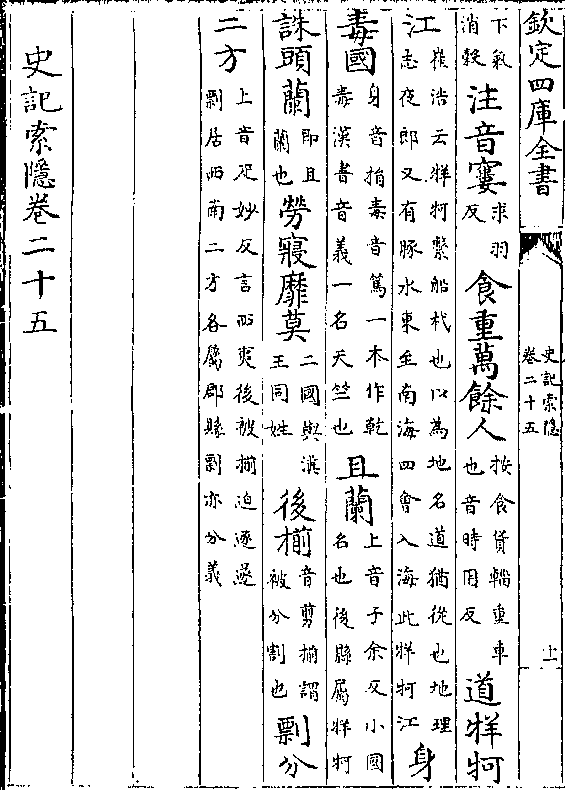 欽定四庫全書
史記索隱
卷二十五
上
下氣消穀注音窶求羽反食重萬餘人按食貨輜重車也音時用反道牂牁
江崔浩云牂牁繫船杙也以為地名道猶從也地理志夜郎又有豚水東至南海四會入海此牂牁江身
毒國身音捐毒音篤一木作乾毒漢書音義一名天竺也且蘭上音子余反小國名也後縣屬牂牁
誅頭蘭即且蘭也勞寢靡莫二國與滇王同姓後揃音剪揃謂被分割也剽分
二方上音疋妙反言西夷後被揃迫逐遂剽居西南二方各屬郡縣剽亦分義
史記索隱卷二十五